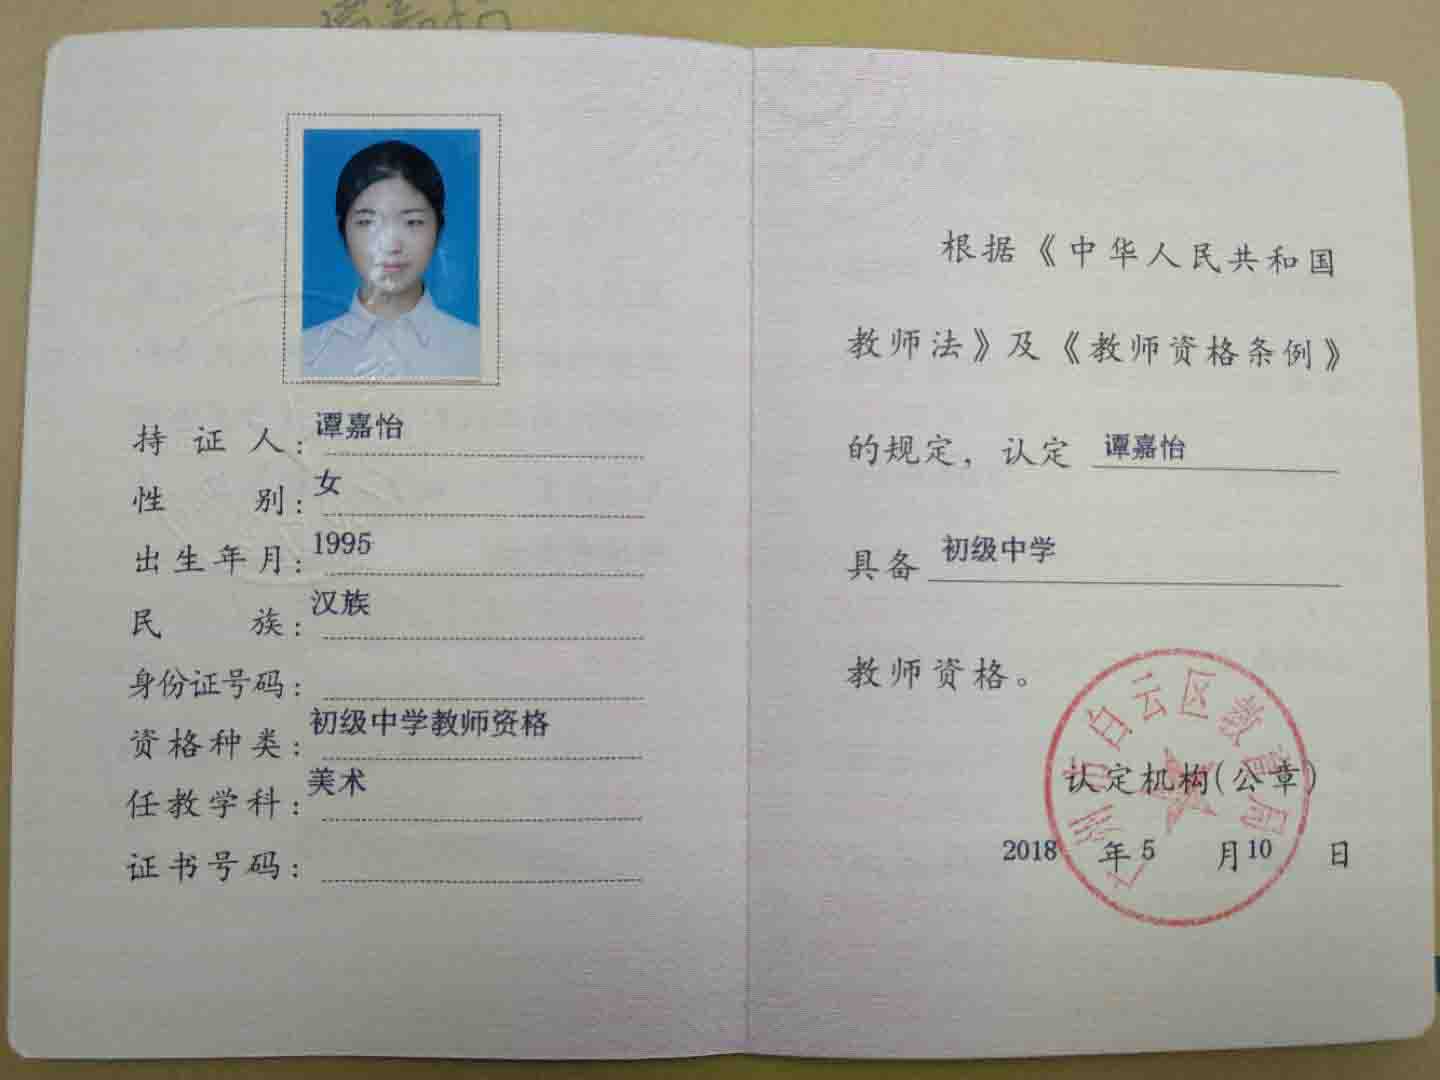 持证人：谭嘉怡
性别：女
出生年月：1995
民族：汉族
身份证号码：
资格种类：初级中学教师资格
任教学科：美术
证书号码：
根据《中华人民共和国
教师法》及《教师资格条例》
的规定，认定 谭嘉怡
具备 初级中学
教师资格。
广州市白云区教育局
认定机构(公章)
2018 年 5 月 10 日